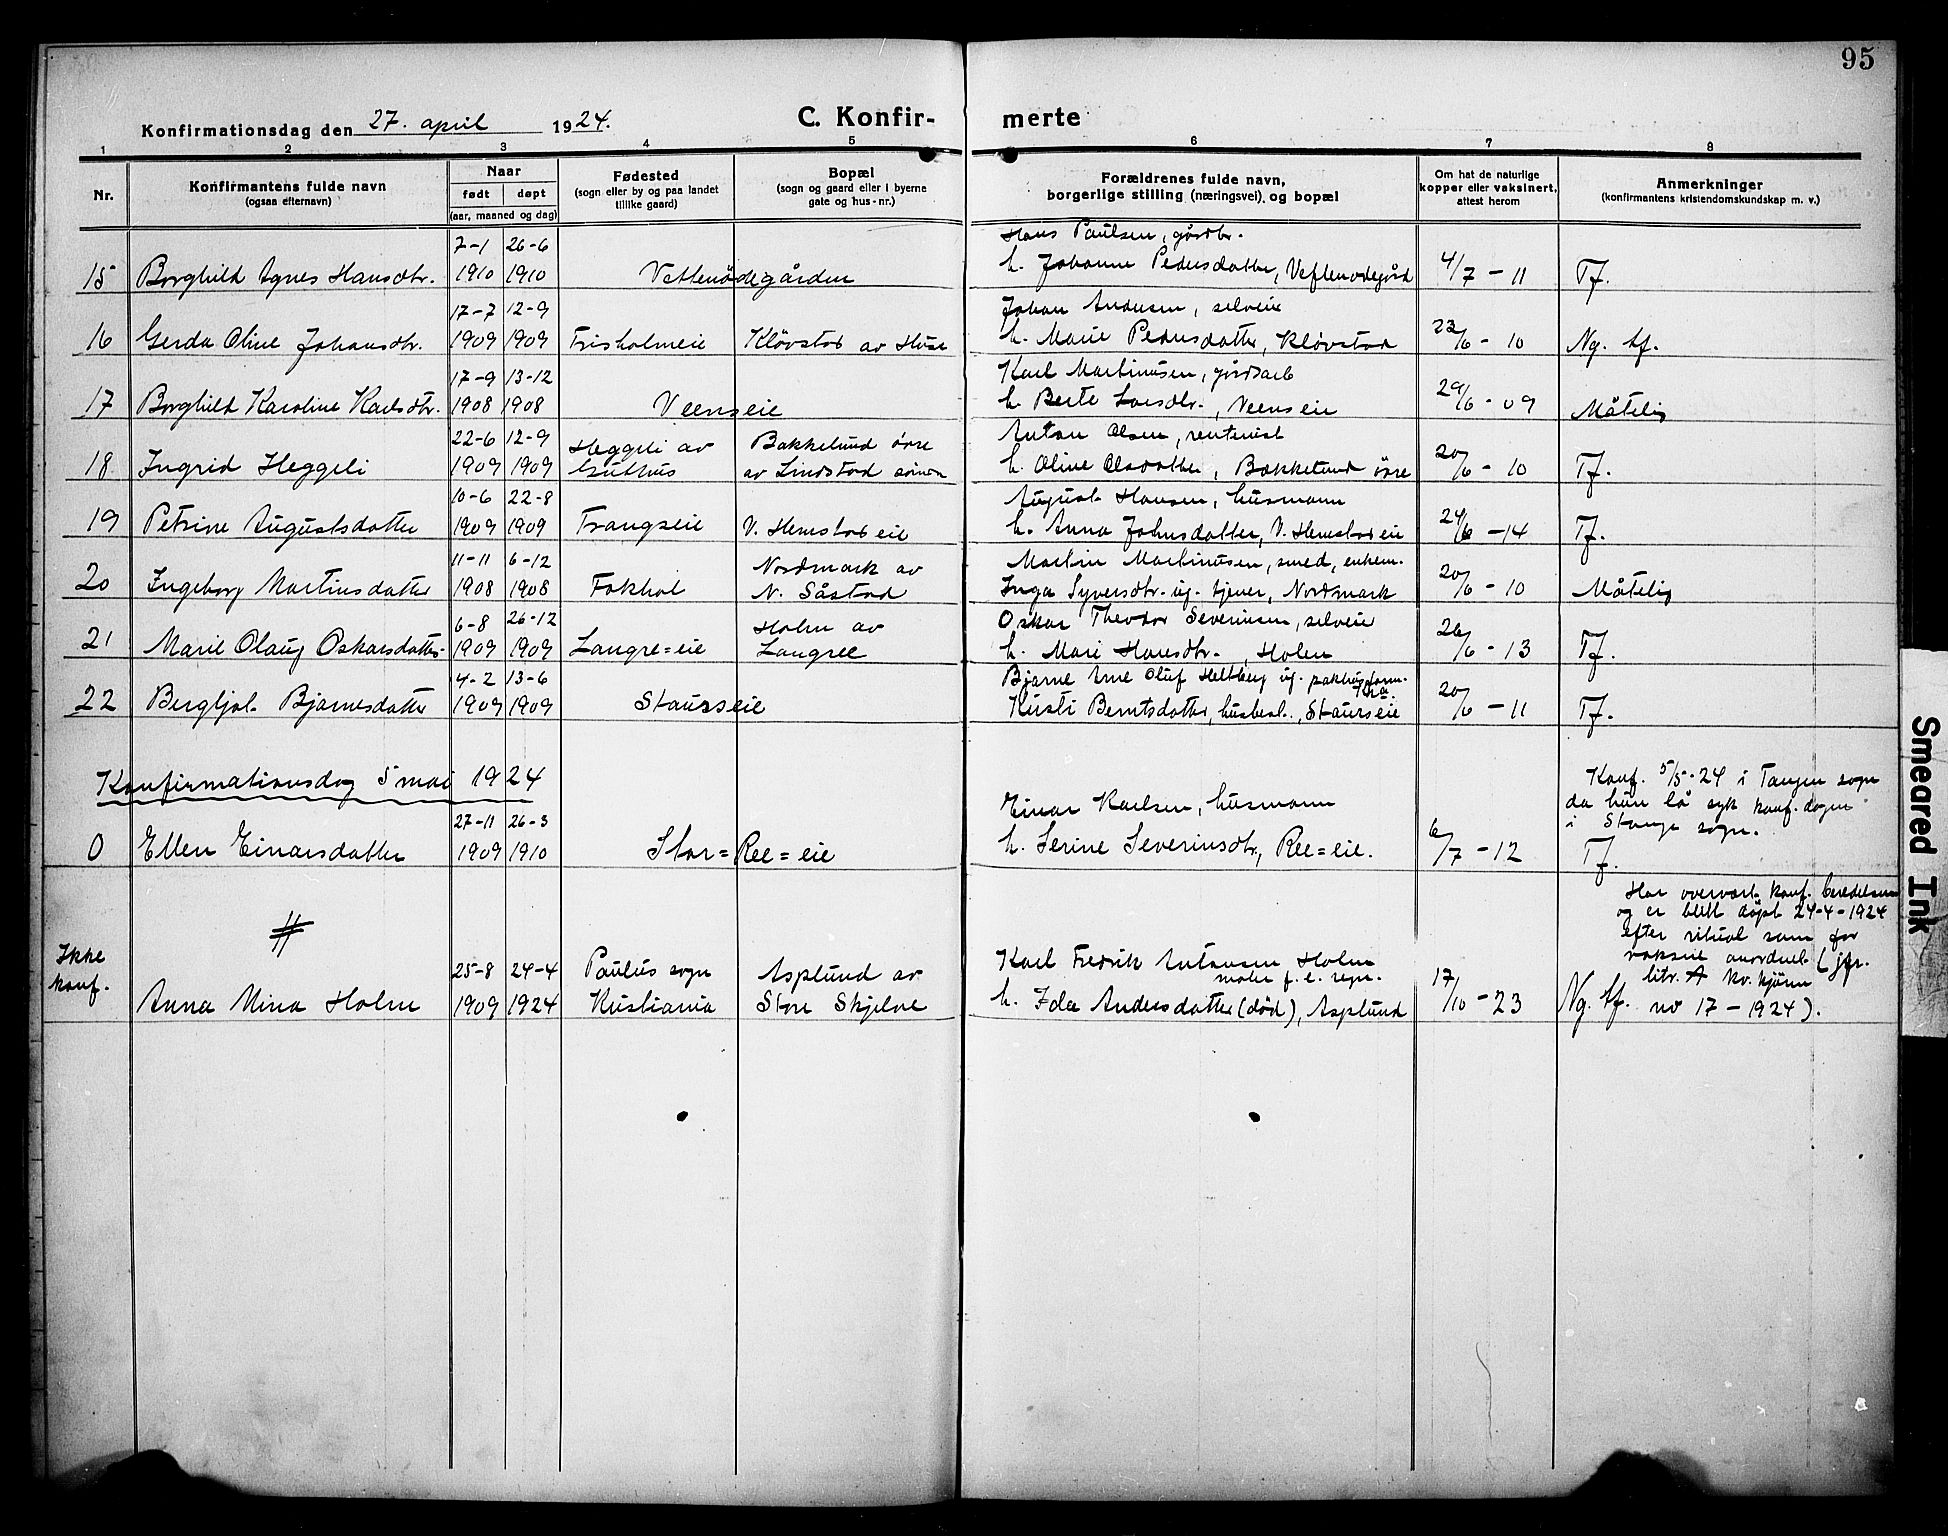 95
Konfirmationsdag den 27. april 1924.
C. Konfir-
merte
1 2 3 4 5 6 7 8
Nr.
Konfirmantens fulde navn
(ogsaa efternavn)
Naar
født døpt
(aar, maaned og dag)
Fødested
(sogn eller by og paa landet
tillike gaard)
Bopæl
(sogn og gaard eller i byerne
gate og hus-nr.)
Forældrenes fulde navn,
borgerlige stilling (næringsvei) og bopæl
Om hat de naturlige
kopper eller vaksinert,
attest herom
Anmerkninger
(konfirmantens kristendomskundskap m. v.)
7-1 26-6 Hans Paulsen, gårdbr.
15 Borghild Agnes Hansdtr. 1910 1910 Vettenødegården h. Johanne Pedersdatter, 4/7 - 11 Tf.
17-7 12-9 Johan Andersen, selveie
16 Gerda Oline Johansdtr. 1909 1909 Frisholmeie Kløvstad av Huse h. Marie Pedersdatter, Kløvstad 23/6 - 10 Ng. tf.
17-9 13-12 Karl Martinusen, gårdsarb
17 Borghild Karoline Karlsdtr. 1908 1908 Veenseie h. Berte Larsdtr., Veenseie 29/6 - 09 Måtelig
22-6 12-9 Heggeli av Bakkelund øvre Anton Olsen, rentenist
18. Ingrid Heggeli 1909 1909 Guthus av Lindstad h. Oline Olsdatter, Bækkelund øvre 20/6 - 10 Tf.
10-6 22-8 August Hansen, husmann
19 Petrine Augustsdatter 1909 1909 Trangseie V. Hemstad eie h. Anna Johnsdatter, V. Hemstad eie 24/6 - 14 Tf.
11-11 6-12 Nordmark av Martin Martinusen, smed, enkem.
20 Ingeborg Martinsdatter 1908 1908 Fokhol N. Såstad Inga Syversdtr. ug. tjener, Nordmark 20/6 - 10 Måtelig
6-8 26-12 Holen av Oskar Theodor Severinsen, selveie
21 Marie Olaug Oskarsdatter 1909 1909 Langre=eie Langree h. Mari Hansdtr., Holen 26/6 - 13 Tf.
4-2 13-6 Bjarne Arne Oluf Heltberg ug.
22 Bergljot Bjarnesdatter 1909 1909 Staurseie Kirsti Berntsdatter, husbest., Staurseie 20/6 - 11 Tf.
Konfirmationsdag 5 mai 1924
Konf. 5/5-24 i Tangen sogn
da hun lå syk konf. dagen
i Stange sogn.
27-11 26-3 Einar Karlsen, husmann
0 Ellen Einarsdatter 1909 1910 Stor=Ree=eie h. Serine Severinsdtr, Ree=eie. 6/7 - 12 Tf.
Har overvært konf. beredelsen
og er blitt døpt 24-4-1924
efter ritual som for
voksne anordnet (jfr.
litr. A kv. kjønn
#
Ikke
konf.
25-8 24-4 Paulus sogn Asplund av Karl Fredrik Antonsen Holm
maler f. e. regn.
Anna Mina Holm 1909 1924 Kristiania Store Skjelve h. Ida Andersdatter (død), Asplund 17/10 - 23 Ng. tf. nr 17 - 1924).
Smeared Ink